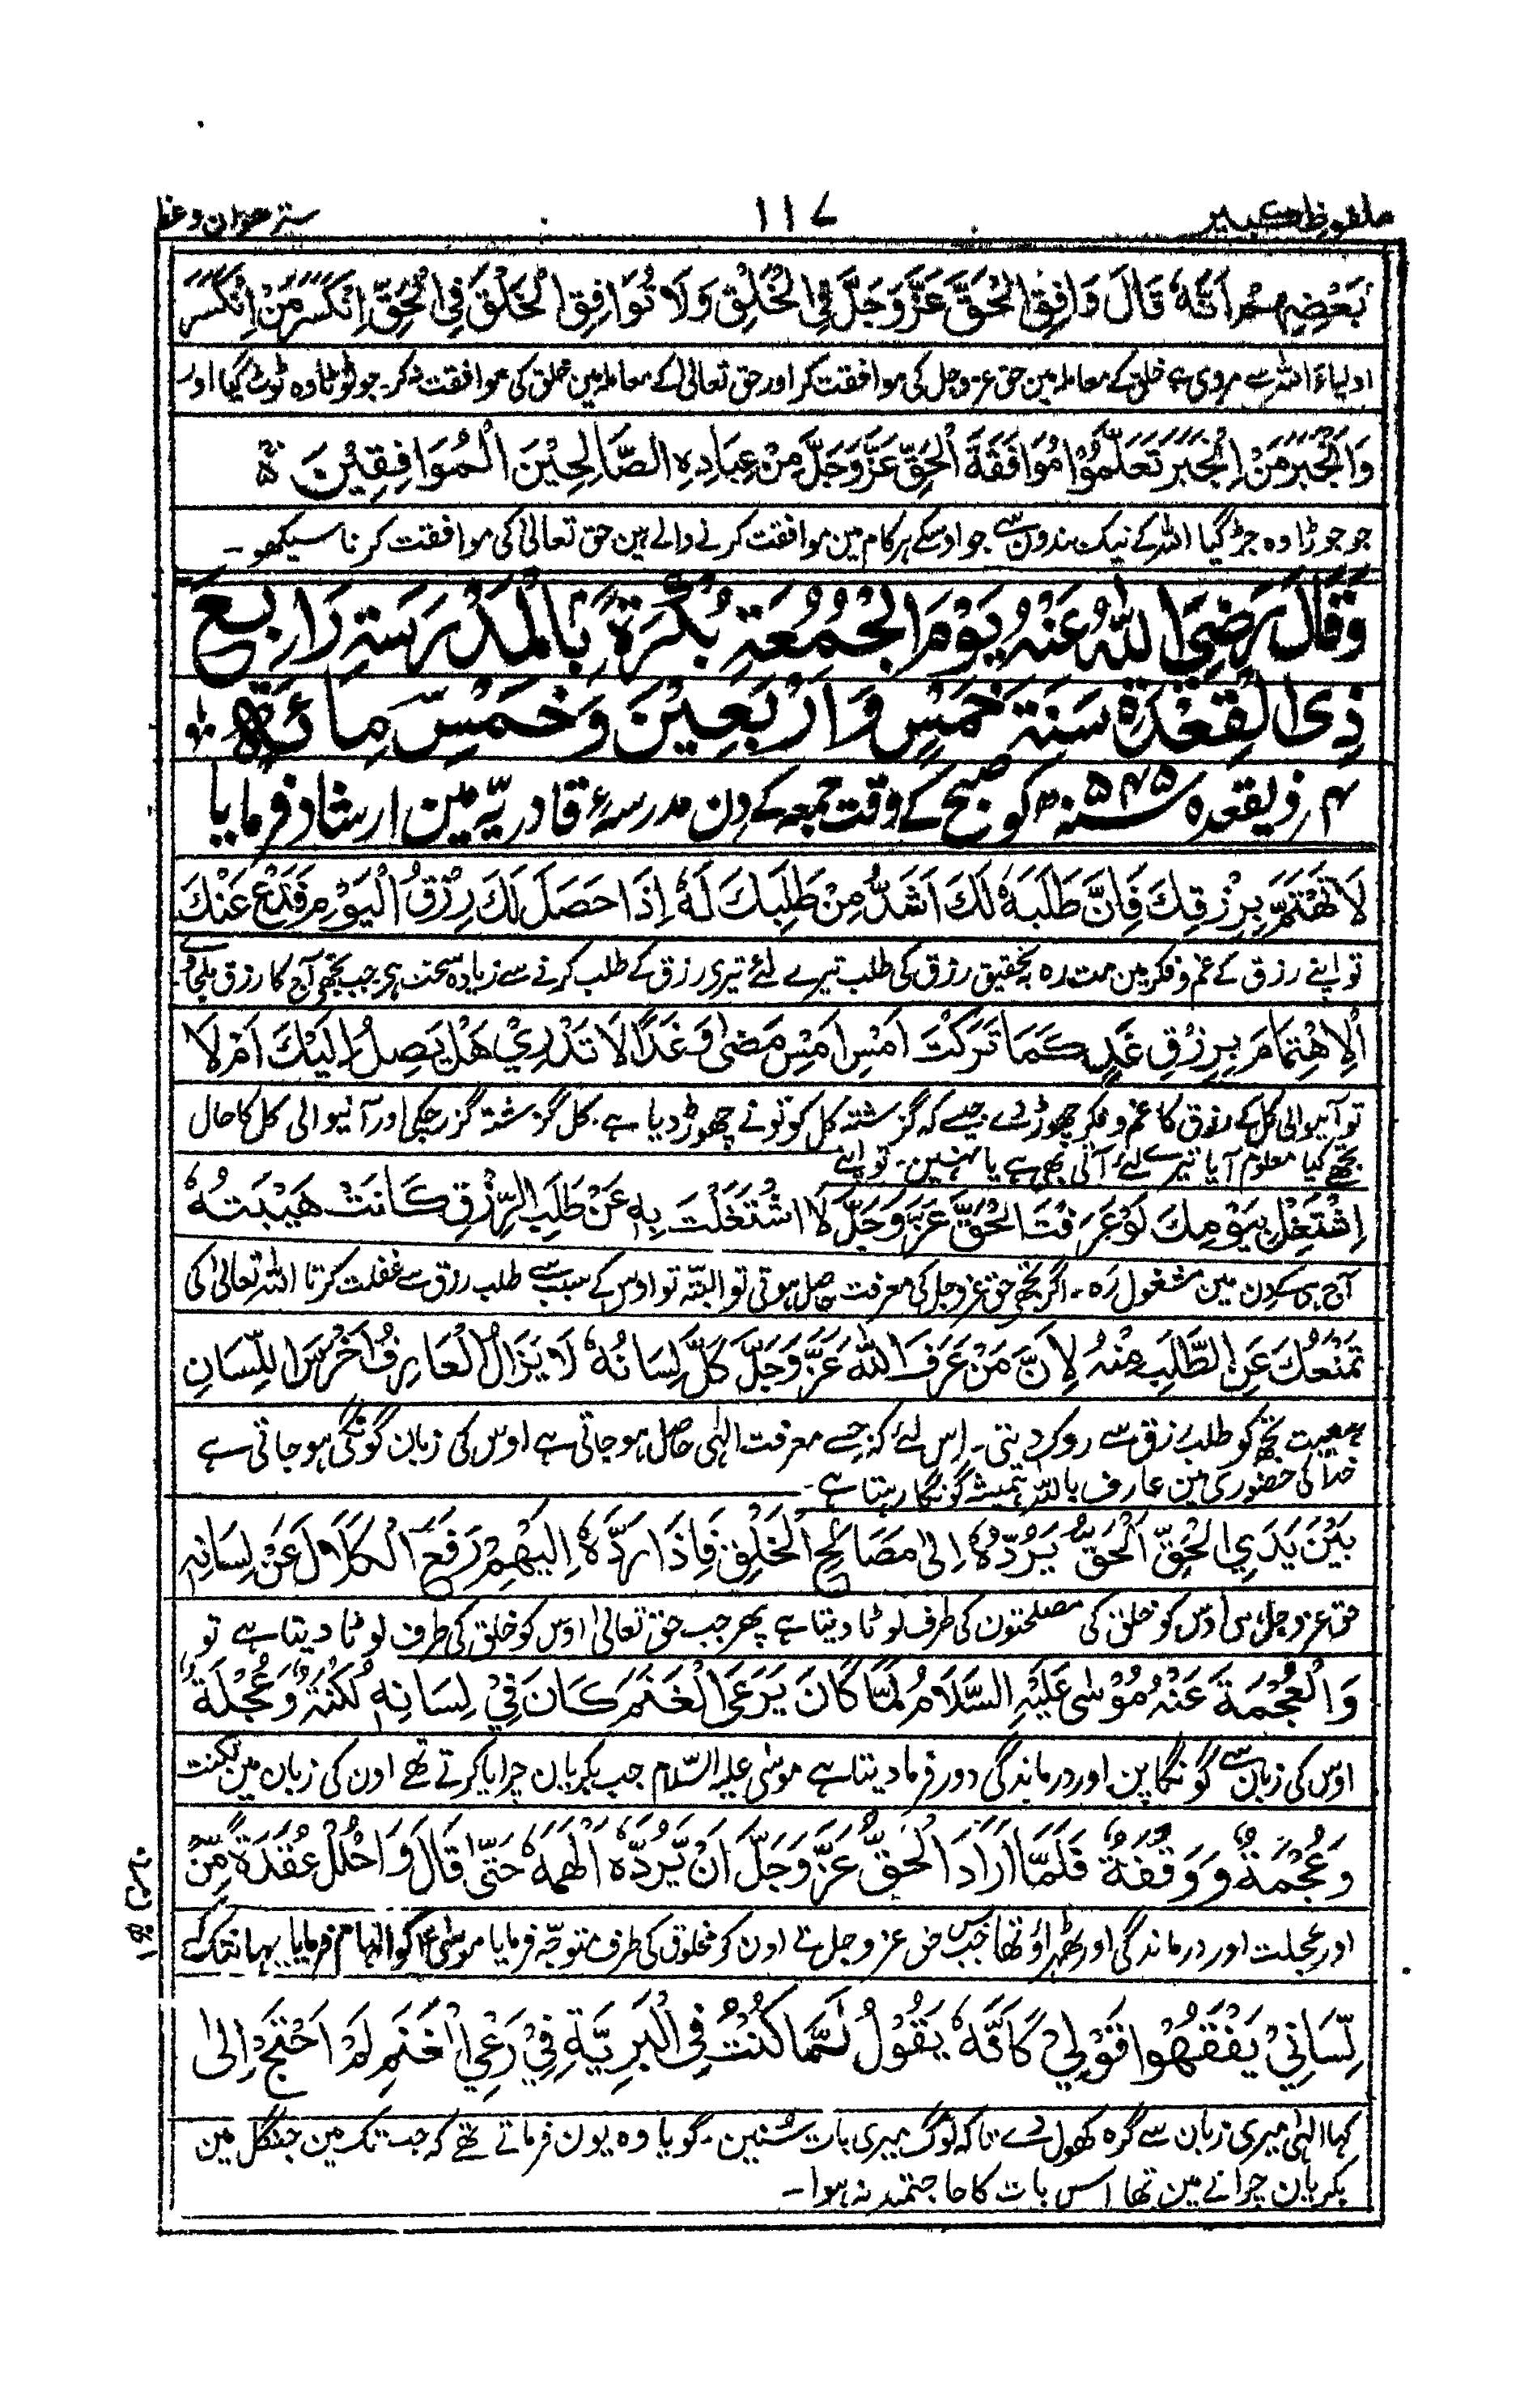 ملفوظ کبیر ۱۱۷ ستر عنوان وعظ
بَعْضِهِمْ اَنَّهٗ قَالَ وَافِقِ الْحَقَّ عَزَّوَجَلَّ فِي الْخَلْقِ وَلَا تُوَافِقِ الْخَلْقَ فِي الْحَقِّ اِنْكَسَرَ مَنْ اِنْكَسَرَ
اولیاء اللہ سے مروی ہے خلق کے معاملہ مین حق عزوجل کی موافقت کر اور حق تعالیٰ کے معاملہ مین خلق کی موافقت نہ کر۔ جو ٹوٹا وہ ٹوٹ گیا اور
وَانْجَبَرَ مَنْ اِنْجَبَرَ تَعَلَّمُوْا مُوَافَقَةَ الْحَقِّ عَزَّوَجَلَّ مِنْ عِبَادِهِ الصَّالِحِيْنَ الْمُوَافِقِيْنَ ۀ
جو جوڑا وہ جڑ گیا اللہ کے نیک بندون سے جو اوسکے ہر کام مین موافقت کرنے والے ہین حق تعالیٰ کی موافقت کرنا سیکھو۔
وَقَالَ رَضِيَ اللّٰهُ عَنْهُ يَوْمَ الْجُمُعَةِ بُكْرَةً بِالْمَدْرَسَةِ رَابِعَ
ذِي الْقِعْدَةِ سَنَةَ خَمْسٍ وَاَرْبَعِيْنَ وَخَمْسِ مِائَةٍ
۴؍ ذیقعدہ ۵۴۵ سنہ کو صبح کے وقت جمعہ کے دن مدرسۂ قادریہ مین ارشاد فرمایا
لَا تَهْتَمَّ بِرِزْقِكَ فَاِنَّ طَلَبَهٗ لَكَ اَشَدُّ مِنْ طَلِبِكَ لَهٗ اِذَا حَصَلَ لَكَ رِزْقُ الْيَوْمِ فَدَعْ عَنْكَ
تو اپنے رزق کے غم و فکر مین مت رہ بہ تحقیق رزق کی طلب تیرے لئے تیری رزق کے طلب کرنے سے زیادہ سخت ہی جب تجھے آج کا رزق ملجاوے
الْاِهْتِمَامَ بِرِزْقِ غَدٍ كَمَا تَرَكْتَ اَمْسِ اَمْسِ مَضٰى وَغَدًا لَا تَدْرِيْ هَلْ يَصِلُ اِلَيْكَ اَمْ لَا
تو آنیوالی کل کے رزق کا غم و فکر چھوڑ دے جیسے کہ گزشتہ کل کو تونے چھوڑ دیا ہے۔ کل گزشتہ گزر چکی اور آنیوالی کل کا حال
تجھے کیا معلوم آیا تیرے لئے آتی بھی ہے یا نہین۔ تو اپنے
اِشْتَغِلْ بِيَوْمِكَ لَوْ عَرَفْتَ الْحَقَّ عَزَّوَجَلَّ لَا اشْتَغَلْتَ بِهٖ عَنْ طَلَبِ الرِّزْقِ كَانَتْ هَيْبَتُهٗ
آج ہی کے دن مین مشغول رہ۔ اگر تجھے حق عزوجل کی معرفت حاصل ہوتی تو البتہ تو اوس کے سبب سے طلب رزق سے غفلت کرتا اللہ تعالیٰ کی
تَمْنَعُكَ عَنِ الطَّلَبِ مِنْهُ لِاَنَّ مَنْ عَرَفَ اللّٰهَ عَزَّوَجَلَّ كَلَّ لِسَانُهٗ لَا يَزَالُ الْعَارِفُ اَخْرَسَ اللِّسَانِ
ہیبت تجھ کو طلب رزق سے روک دیتی۔ اس لئے کہ جسے معرفت الٰہی حاصل ہو جاتی ہے اوس کی زبان گونگی ہو جاتی ہے
خدا کی حضوری مین عارف باللہ ہمیشہ گونگا رہتا ہے۔
بَيْنَ يَدَيِ الْحَقِّ الْحَقُّ يَرُدُّهٗ اِلٰى مَصَالِحِ الْخَلْقِ فَاِذَا رَدَّهٗ اِلَيْهِمْ رَفَعَ الْكَلَالَ عَنْ لِسَانِهٖ
حق عزوجل ہی اوس کو خلق کی مصلحتون کی طرف لوٹا دیتا ہے پھر جب حق تعالیٰ اوس کو خلق کی طرف لوٹا دیتا ہے تو
وَالْعُجْمَةَ عَنْهُ مُوْسٰى عَلَيْهِ السَّلَامُ لَمَّا كَانَ يَرْعَى الْغَنَمَ كَانَ فِيْ لِسَانِهٖ لُكْنَةٌ وَّعُجْلَةٌ
اوس کی زبان سے گونگا پن اور درماندگی دور فرما دیتا ہے موسٰی علیہ السلام جب بکریان چرایا کرتے تھے اون کی زبان مین لکنت
وَّعُجْمَةٌ وَّوَقْفَةٌ فَلَمَّا اَرَادَ الْحَقُّ عَزَّوَجَلَّ اَنْ يَّرُدَّهٗ اَلْهَمَهٗ حَتّٰى قَالَ وَاحْلُلْ عُقْدَةً مِّنْ
اور عجلت اور درماندگی اور ٹھہراؤ تھا پس جب حق عزوجل نے اون کو مخلوق کی طرف متوجہ فرمایا موسٰیؑ کو الہام فرمایا یہانتک کہ
لِّسَانِيْ يَفْقَهُوْا قَوْلِيْ كَاَنَّهٗ يَقُوْلُ لَمَّا كُنْتُ فِي الْبَرِيَّةِ فِيْ رَعْيِ الْغَنَمِ لَمْ اَحْتَجْ اِلٰى
کہا الٰہی میری زبان سے گرہ کھول دے تاکہ لوگ میری بات سُنین۔ گویا وہ یون فرماتے تھے کہ جب تک مین جنگل مین
بکریان چرانے مین تھا اس بات کا حاجتمند نہ ہوا۔